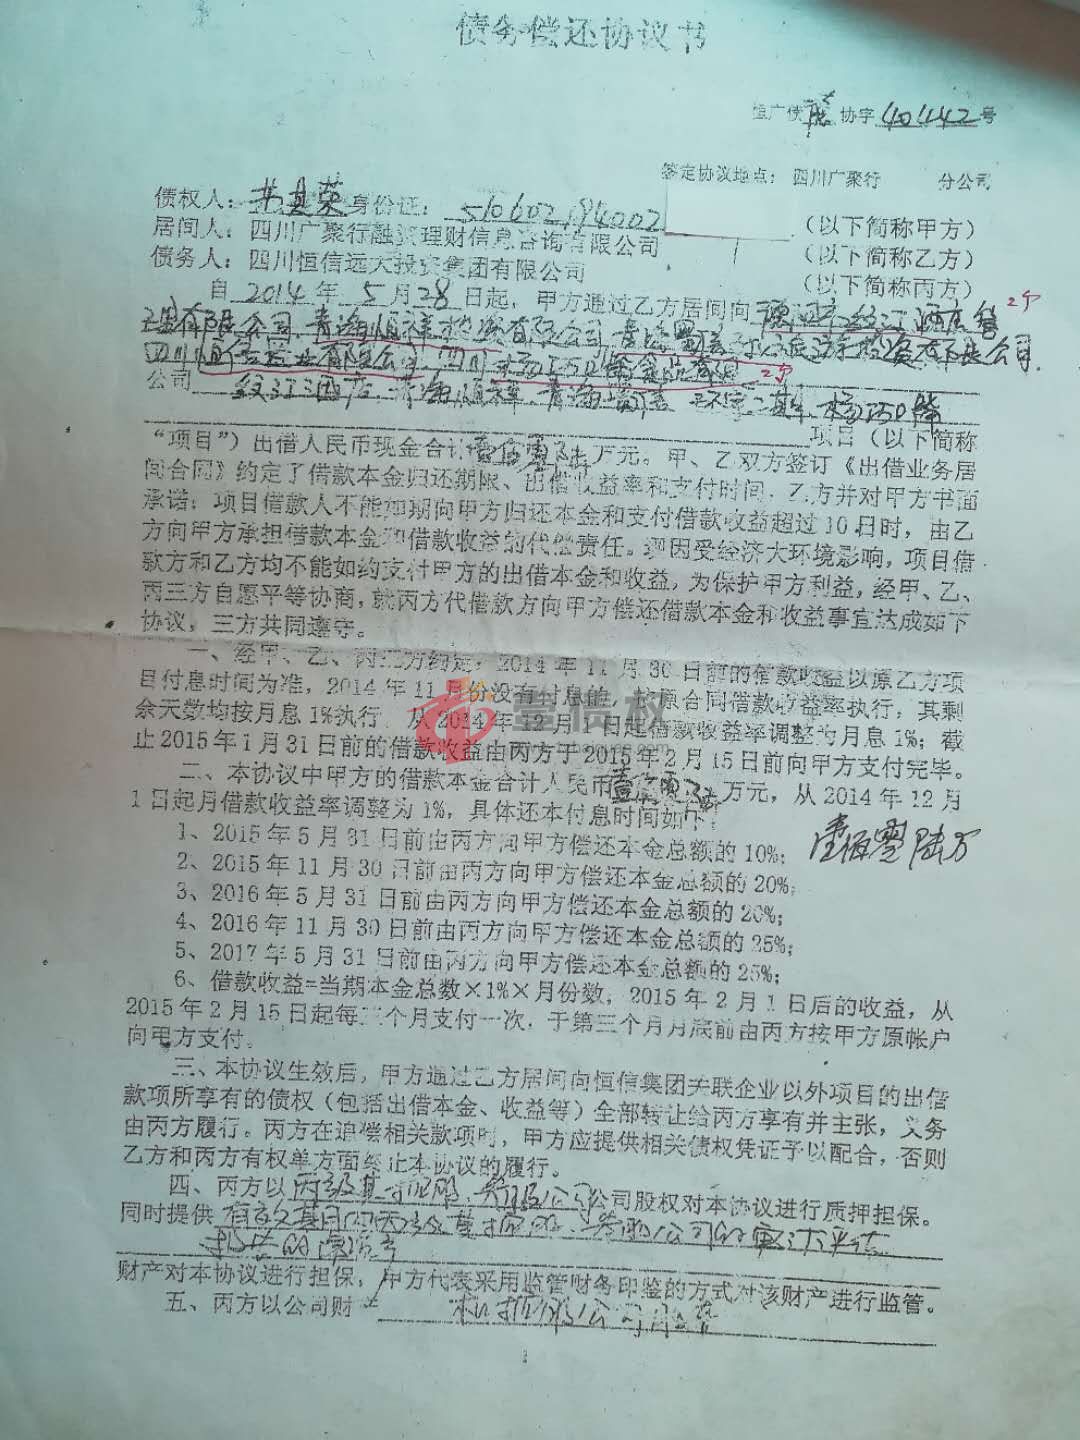 债务偿还协议书
恒广债 协字401142号
签定协议地点：四川广聚行 分公司
债权人： 其荣身份证：510602194002 （以下简称甲方）
居间人：四川广聚行融资理财信息咨询有限公司 （以下简称乙方）
债务人：四川恒信远大投资集团有限公司 （以下简称丙方）
自2014年5月28日起，甲方通过乙方居间向 酒店管 2个
理有限公司 青海恒祥投资有限公司 青海 投资有限公司
四川恒信 有限公司 四川 食品有限 2个
公司
酒店 青海恒祥 青海 二期 杨 项目（以下简称
“项目”）出借人民币现金合计壹佰零陆万元。甲、乙双方签订《出借业务居
间合同》约定了借款本金归还期限、出借收益率和支付时间，乙方并对甲方书面
承诺：项目借款人不能如期向甲方归还本金和支付借款收益超过10日时，由乙
方向甲方承担借款本金和借款收益的代偿责任。现因受经济大环境影响，项目借
款方和乙方均不能如约支付甲方的出借本金和收益，为保护甲方利益，经甲、乙、
丙三方自愿平等协商，就丙方代借款方向甲方偿还借款本金和收益事宜达成如下
协议，三方共同遵守。
一、经甲、乙、丙三方约定，2014年11月30日前的借款收益以原乙方项
目付息时间为准，2014年11月份没有付息的，按原合同借款收益率执行，其剩
余天数均按月息1%执行。从2014年12月1日起借款收益率调整为月息1%；截
止2015年1月31日前的借款收益由丙方于2015年2月15日前向甲方支付完毕。
壹债权
二、本协议中甲方的借款本金合计人民币壹佰零陆万元，从2014年12月
1日起月借款收益率调整为1%，具体还本付息时间如下：
1、2015年5月31日前由丙方向甲方偿还本金总额的10%； 壹佰零陆万
2、2015年11月30日前由丙方向甲方偿还本金总额的20%；
3、2016年5月31日前由丙方向甲方偿还本金总额的20%；
4、2016年11月30日前由丙方向甲方偿还本金总额的25%；
5、2017年5月31日前由丙方向甲方偿还本金总额的25%；
6、借款收益=当期本金总数×1%×月份数，2015年2月1日后的收益，从
2015年2月15日起每三个月支付一次，于第三个月月底前由丙方按甲方原帐户
向甲方支付。
三、本协议生效后，甲方通过乙方居间向恒信集团关联企业以外项目的出借
款项所享有的债权（包括出借本金、收益等）全部转让给丙方享有并主张，义务
由丙方履行。丙方在追偿相关款项时，甲方应提供相关债权凭证予以配合，否则
乙方和丙方有权单方面终止本协议的履行。
四、丙方以丙方及其控股、参股公司公司股权对本协议进行质押担保。
同时提供 控股、参股公司
财产对本协议进行担保，甲方代表采用监管财务印鉴的方式对该财产进行监管。
五、丙方以公司财
1